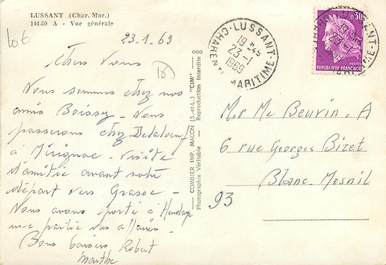 LUSSANT (Char. Mar.)
14430 A - Vue générale
Lot
23.1.69
Chers Vous
Nous sommes chez nos
amis Boissy. Nous
passerons chez
à Mérignac. Visite
d'amitié avant notre
départ vers Grasse.
Nous avons porté à
une partie
Bons baisers Robert
Marthe
COMBIER IMP. MACON (S.-et-L.) "CIM"
Photographie Véritable - Reproduction Interdite
LUSSANT
19 H
23-1
1969
CHARENTE MARITIME
0,30
REPUBLIQUE FRANÇAISE
Mr Me Bouvin. A
6 rue Georges Bizet
Blanc Mesnil
93